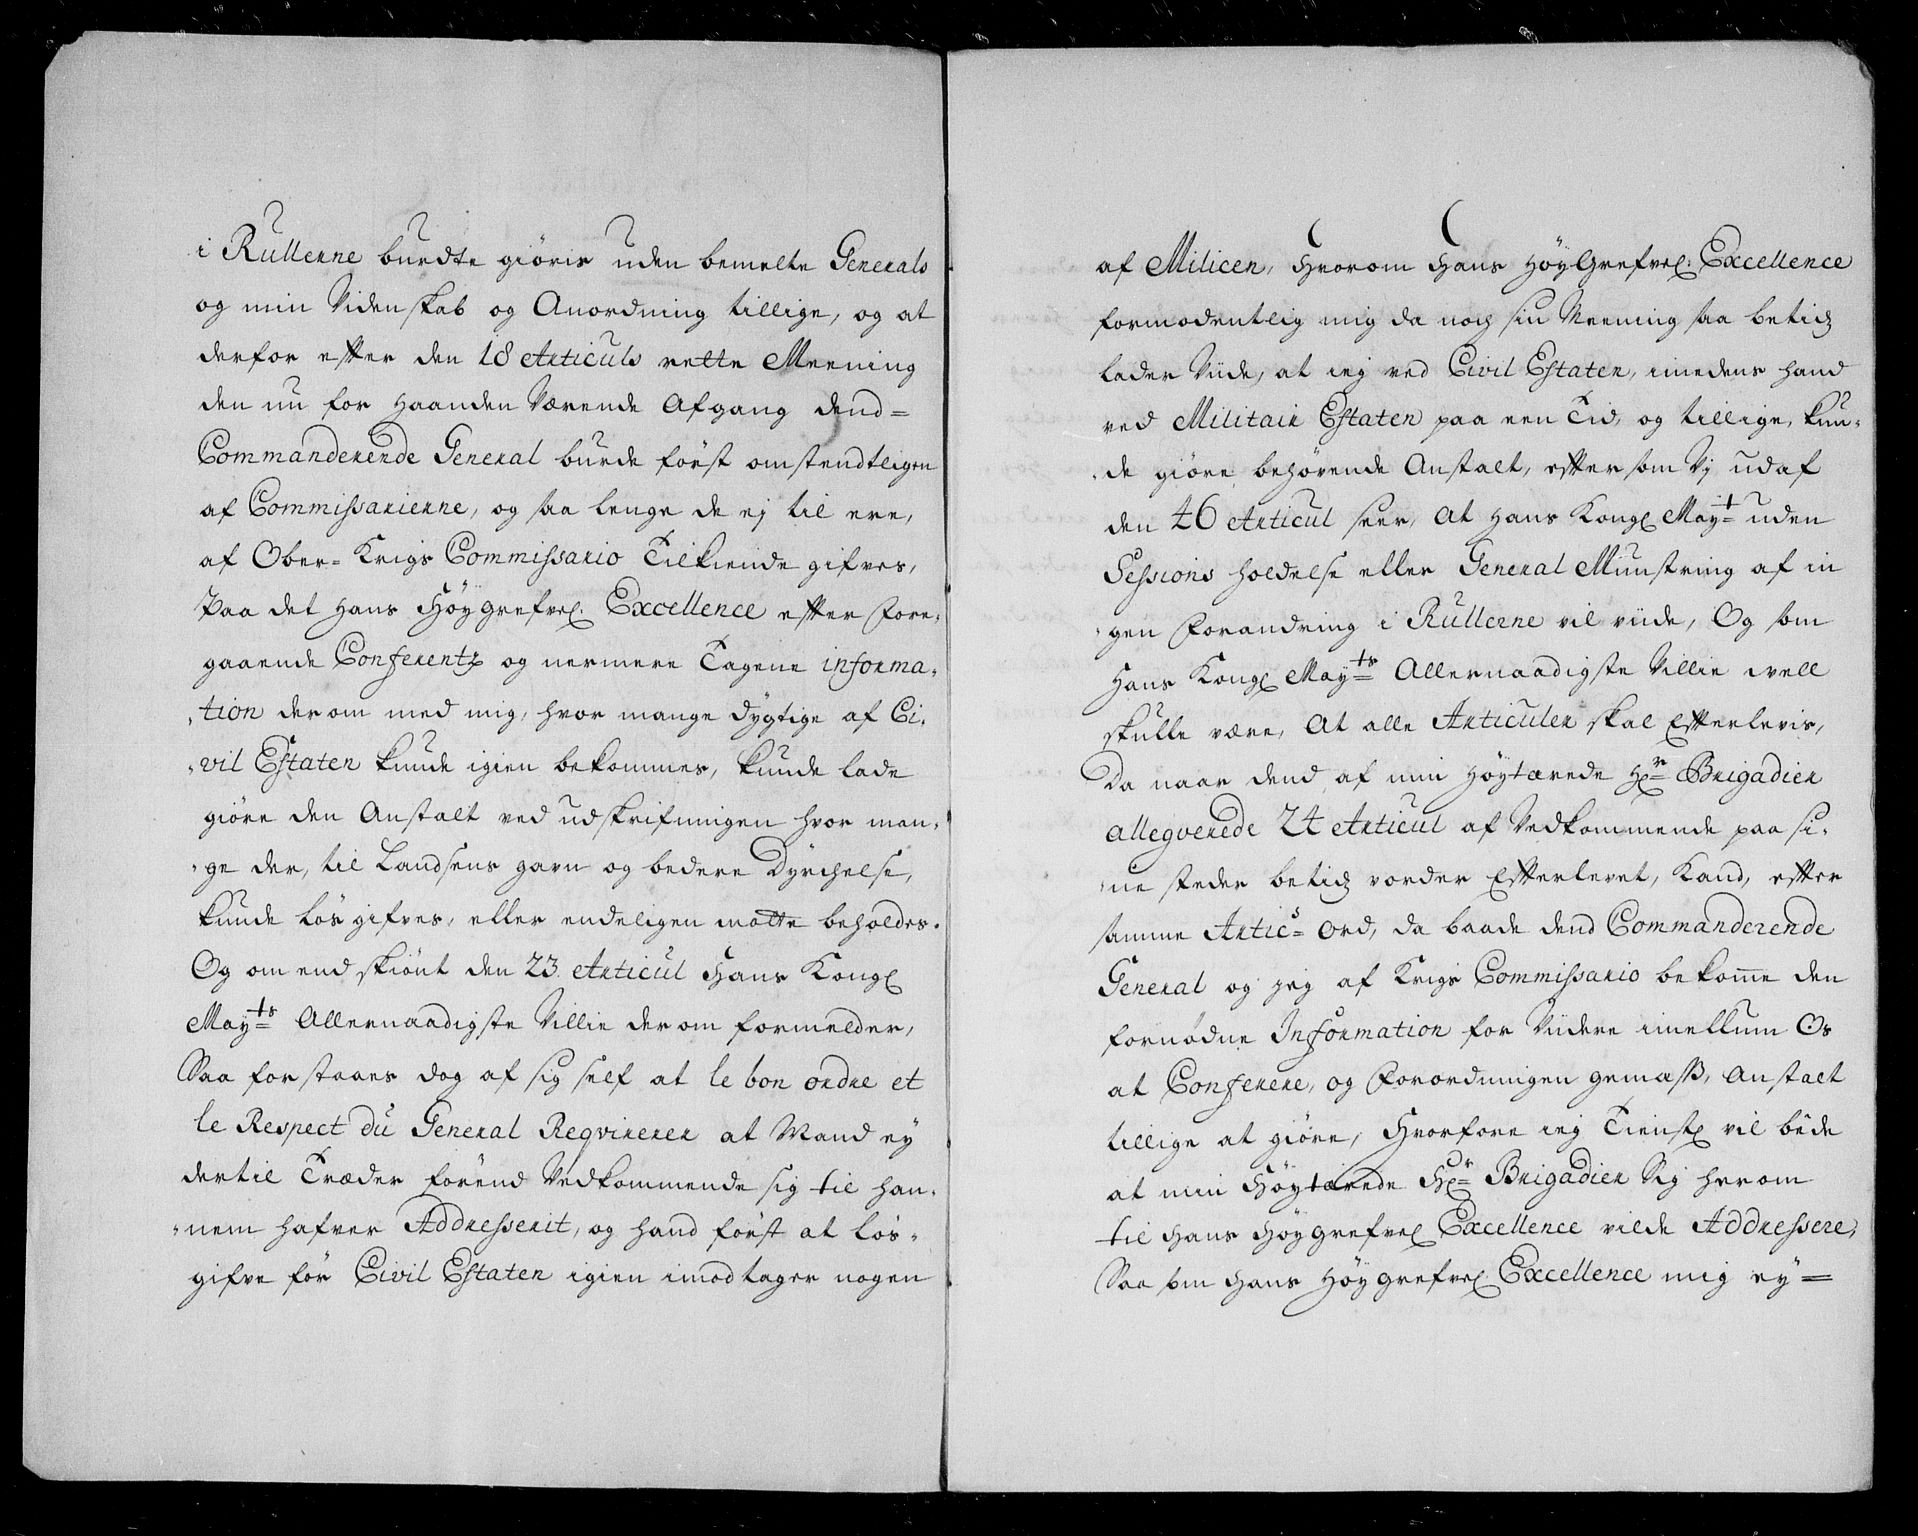 i Rullerne burdte giöris uden bemelte Generals
og min Videnskab og Anordning tillige, og at
derfor efter den 18 Articuls rette Meening
den nu for haanden Værende Afgang dend=
Commanderende General burde först omstendtligen
af Commissarierne, og saa lenge de ej til ere,
af Ober= Krigs Commissario Tilkiende gifves,
Paa det Hans Höygrefvel. Excellence efter Fore=
gaaende Conferentz og nermere Tagene informa=
tion derom med mig, hvor mange dygtige af Ci=
vil Estaten kunde igien bekommes, kunde lade
giöre den Anstalt ved udskrifningen hvor man=
ge der, til Landsens gavn og bedere Dyrchelse,
kunde lös gifves, eller endeligen motte beholdes.
Og om end skiönt den 23. Articul Hans Kongl
Mayts Allernaadigste Villie derom formelder,
Saa forstaaes dog af sig self at le bon ordre et
le Respect du General Reqvirerer at Mand ey
dertil Træder förend Vedkommende sig til han=
nem hafver Addresserit, og hand först at lös=
gifve för Civil Estaten igien imodtager nogen
af Milicen, Hvorom Hans HöyGrefvel. Excellence
formodentlig mig da noch sin Meening saa betids
lader Viide, at ieg ved Civil Estaten, imedens hand
ved Militair Estaten paa een Tid, og tillige, kun=
de giöre behörende Anstalt, efter som Vj udaf
den 46 Articul seer, At Hans Kongl Mayt uden
Sessions holdelse eller General Munstring af in
gen Forandring i Rullerne vil viide, Og som
Hans Kongl Mayts Allernaadigste Villie well
skulle være, At alle Articuler skal Efterlevis,
Da naar dend af min Höytærede Hr Brigadier
allegverede 24 Articul af Vedkommende paa si=
ne steder betids vorder Efterlevet, Kand, efter
samme Artics ord, da baade dend Commanderende
General og jeg af Krigs Commissario bekome den
fornödne Information for Viidere imellum Os
at Conferere, og Forordningen gemæss, Anstalt
tillige at giöre, Hvorfore ieg Tienstl vil bede
at min Höytærede Hr Brigadier Sig herom
til Hans Höygrefvel Excellence vilde Addressere,
Saa som Hans Höygrefvel Excellence mig ey=